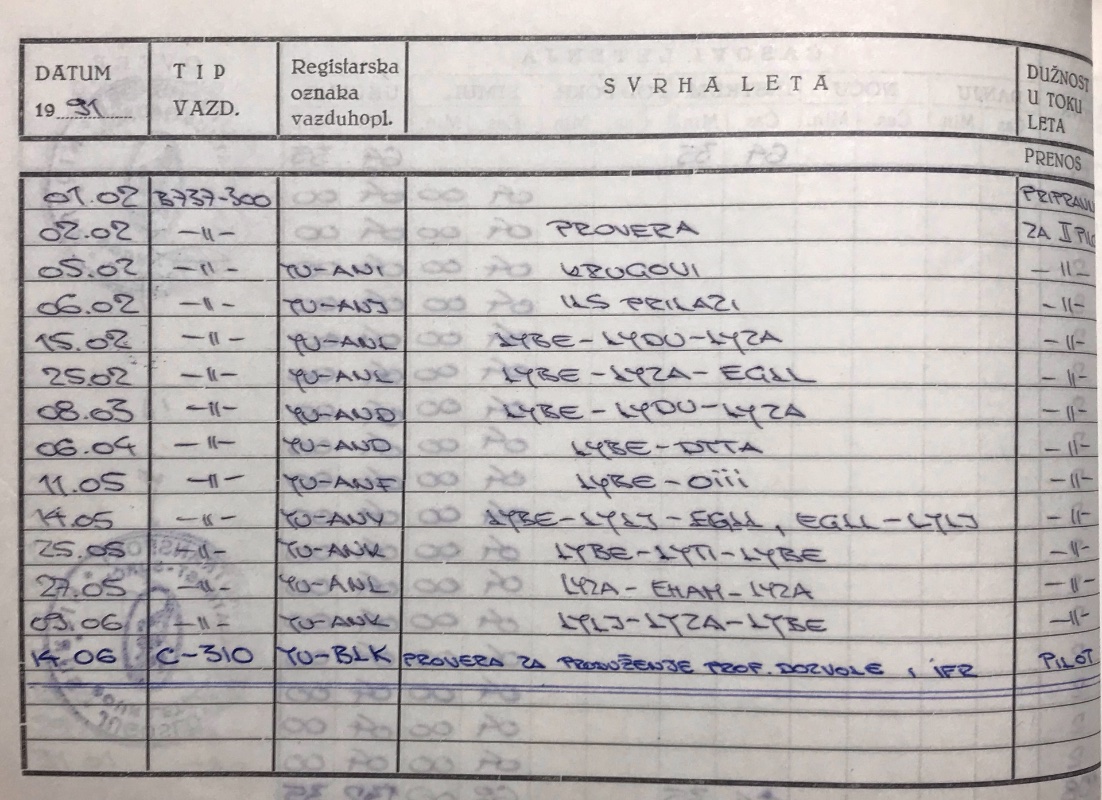 DATUM 1991 TIP VAZD. Registarska oznaka vazduhopl. SVRHA LETA DUŽNOST U TOKU LETA
PRENOS
01.02 B737-300 PRIPRAVNI
02.02 -11- PROVERA ZA II PILO
05.02 -11- YU-ANI KRUGOVI -11-
06.02 -11- YU-ANJ ILS PRILAZI -11-
15.02 -11- YU-ANL LYBE-LYDU-LYZA -11-
25.02 -11- YU-ANL LYBE-LYZA-EGLL -11-
08.03 -11- YU-AND LYBE-LYDU-LYZA -11-
06.04 -11- YU-AND LYBE-DTTA -11-
11.05 -11- YU-ANF LYBE-Oiii -11-
14.05 -11- YU-ANV LYBE-LYLJ-EGLL, EGLL-LYLJ -11-
25.05 -11- YU-ANK LYBE-LYTI-LYBE -11-
27.05 -11- YU-ANL LYZA-EHAM-LYZA -11-
03.06 -11- YU-ANK LYLJ-LYZA-LYBE -11-
14.06 C-310 YU-BLK PROVERA ZA PRODUŽENJE PROF. DOZVOLE i IFR PILOT